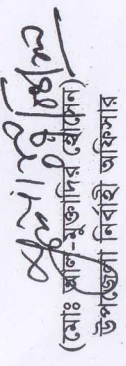 (মোঃ আল-মুক্তাদির হোসেন)
উপজেলা নির্বাহী অফিসার